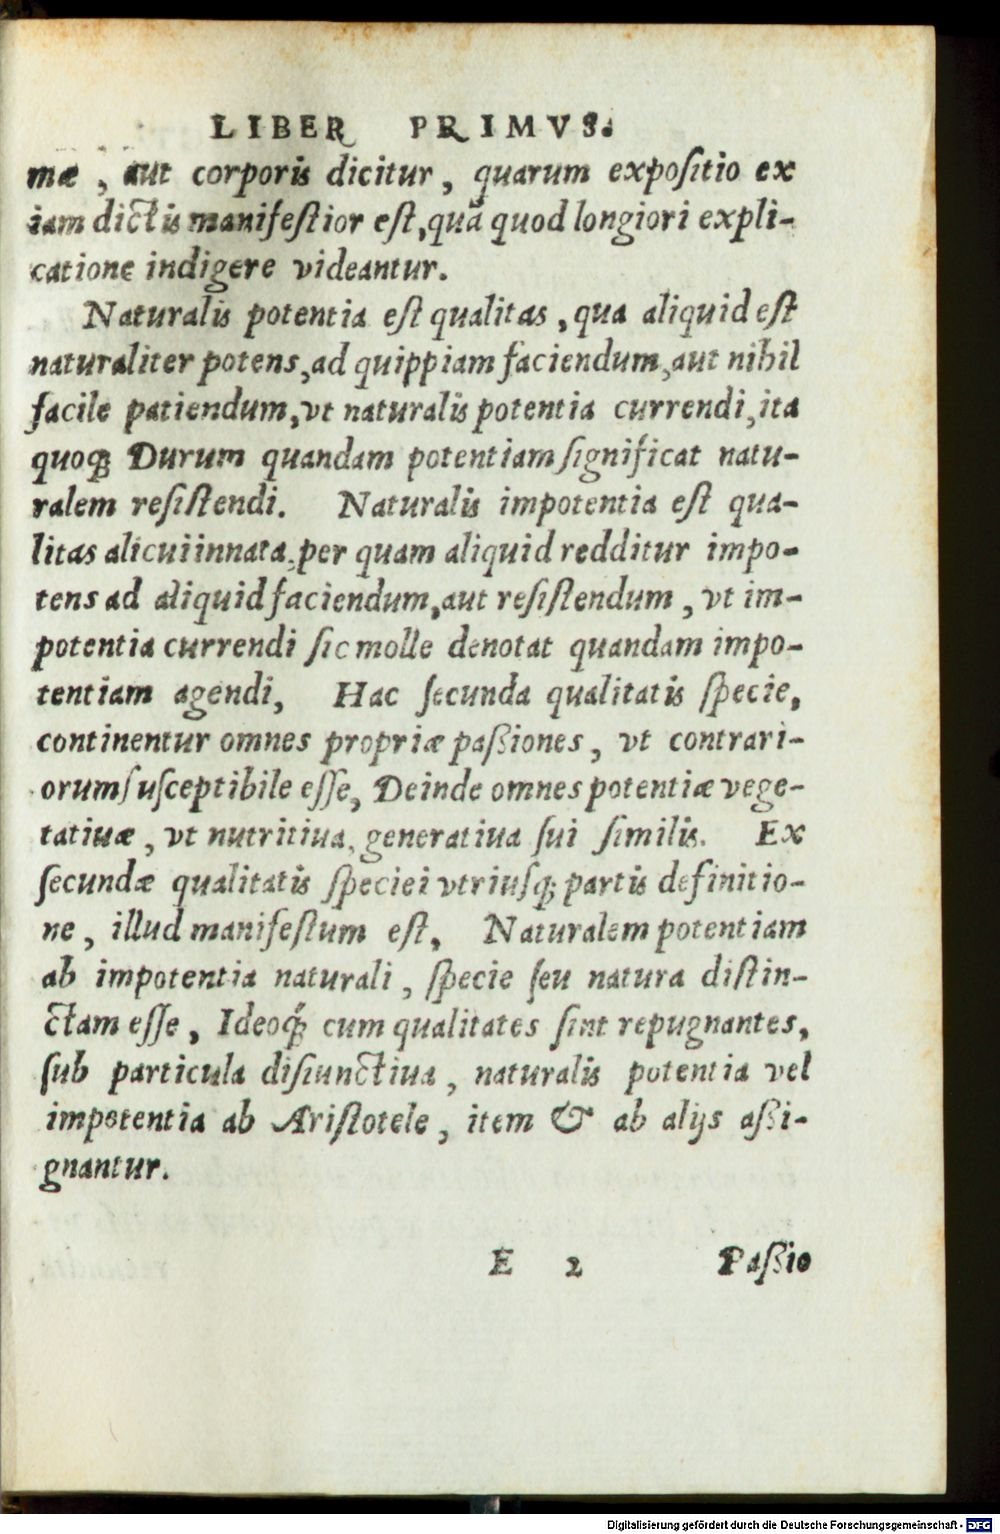 LIBER PRIMVS.
mæ, aut corporis dicitur, quarum expositio ex
iam dictis manifestior est, quã quod longiori expli-
catione indigere videantur.
Naturalis potentia est qualitas, qua aliquid est
naturaliter potens, ad quippiam faciendum, aut nihil
facile patiendum, vt naturalis potentia currendi, ita
quoq; Durum quandam potentiam significat natu-
ralem resistendi. Naturalis impotentia est qua-
litas alicui innata, per quam aliquid redditur impo-
tens ad aliquid faciendum, aut resistendum, vt im-
potentia currendi sic molle denotat quandam impo-
tentiam agendi, Hac secunda qualitatis specie,
continentur omnes propriæ paßiones, vt contrari-
orum susceptibile esse, Deinde omnes potentiæ vege-
tatiuæ, vt nutritiua, generatiua sui similis. Ex
secundæ qualitatis speciei vtriusq; partis definitio-
ne, illud manifestum est, Naturalem potentiam
ab impotentia naturali, specie seu natura distin-
ctam esse, Ideoq́; cum qualitates sint repugnantes,
sub particula disiunctiua, naturalis potentia vel
impotentia ab Aristotele, item & ab alijs aßi-
gnantur.
E 2 Paßio
Digitalisierung gefördert durch die Deutsche Forschungsgemeinschaft - DFG